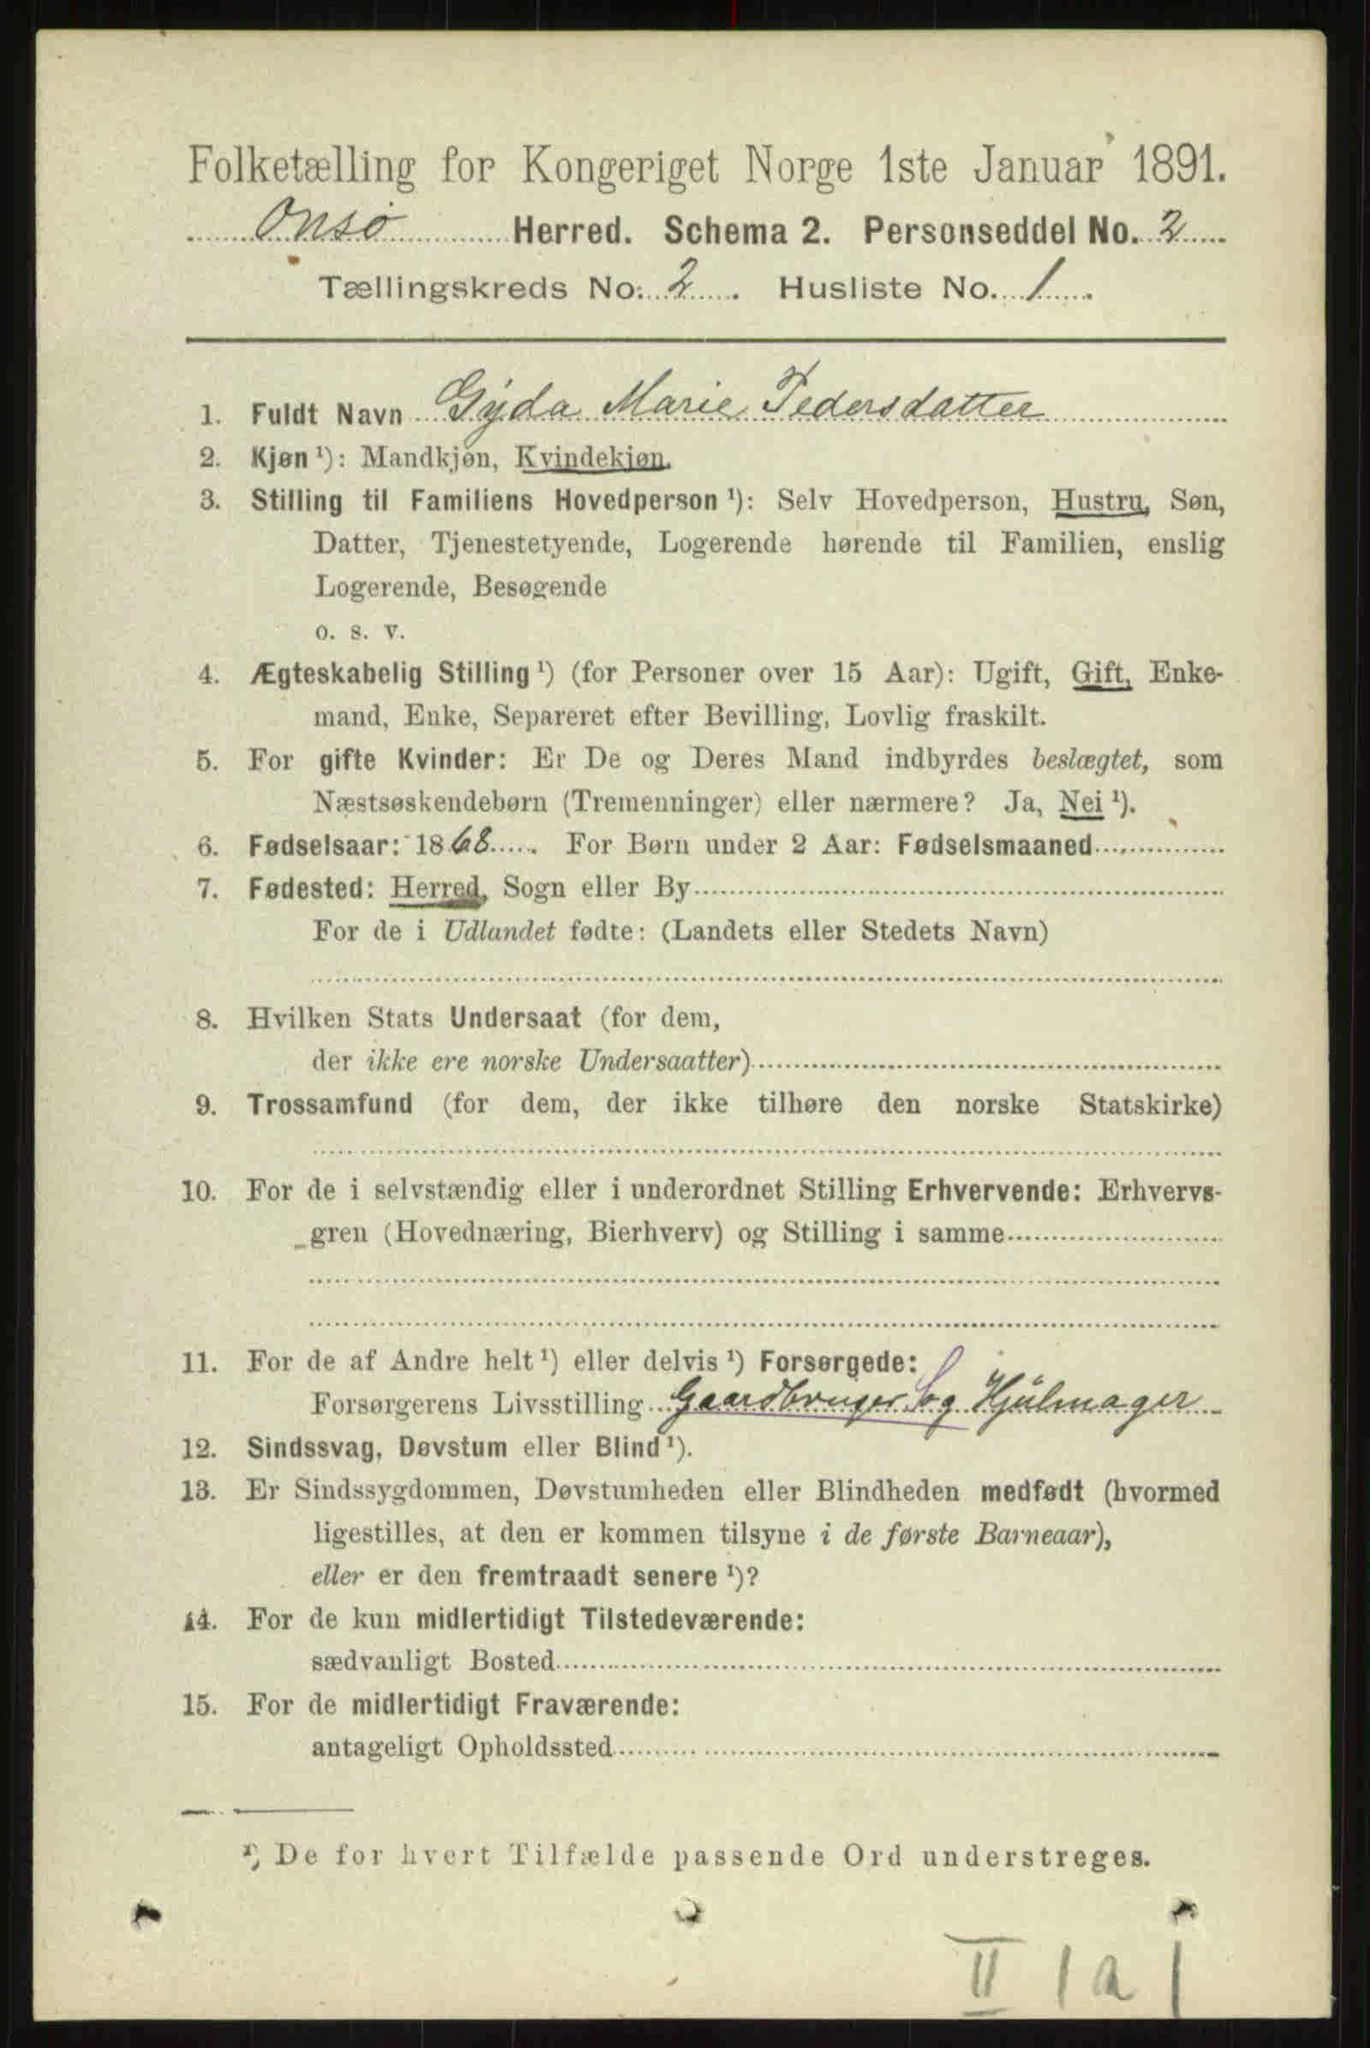 Folketælling for Kongeriget Norge 1ste Januar 1891.
Onsø Herred. Schema 2. Personseddel No. 2
Tællingskreds No. 2. Husliste No. 1.
1. Fuldt Navn Gyda Marie Pedersdatter
2. Kjøn ¹): Mandkjøn, Kvindekjøn.
3. Stilling til Familiens Hovedperson ¹): Selv Hovedperson, Hustru, Søn,
Datter, Tjenestetyende, Logerende hørende til Familien, enslig
Logerende, Besøgende
o. s. v.
4. Ægteskabelig Stilling ¹) (for Personer over 15 Aar): Ugift, Gift, Enke-
mand, Enke, Separeret efter Bevilling, Lovlig fraskilt.
5. For gifte Kvinder: Er De og Deres Mand indbyrdes beslægtet, som
Næstsøskendebørn (Tremenninger) eller nærmere? Ja, Nei ¹).
6. Fødselsaar: 1868. For Børn under 2 Aar: Fødselsmaaned
7. Fødested: Herred, Sogn eller By
For de i Udlandet fødte: (Landets eller Stedets Navn)
8. Hvilken Stats Undersaat (for dem,
der ikke ere norske Undersaatter)
9. Trossamfund (for dem, der ikke tilhøre den norske Statskirke)
10. For de i selvstændig eller i underordnet Stilling Erhvervende: Erhvervs-
gren (Hovednæring, Bierhverv) og Stilling i samme
11. For de af Andre helt ¹) eller delvis ¹) Forsørgede:
Forsørgerens Livsstilling Gaardbruger S og Hjulmager
12. Sindssvag, Døvstum eller Blind ¹).
13. Er Sindssygdommen, Døvstumheden eller Blindheden medfødt (hvormed
ligestilles, at den er kommen tilsyne i de første Barneaar),
eller er den fremtraadt senere ¹)?
14. For de kun midlertidigt Tilstedeværende:
sædvanligt Bosted
15. For de midlertidigt Fraværende:
antageligt Opholdssted
¹) De for hvert Tilfælde passende Ord understreges.
II 1 a 1